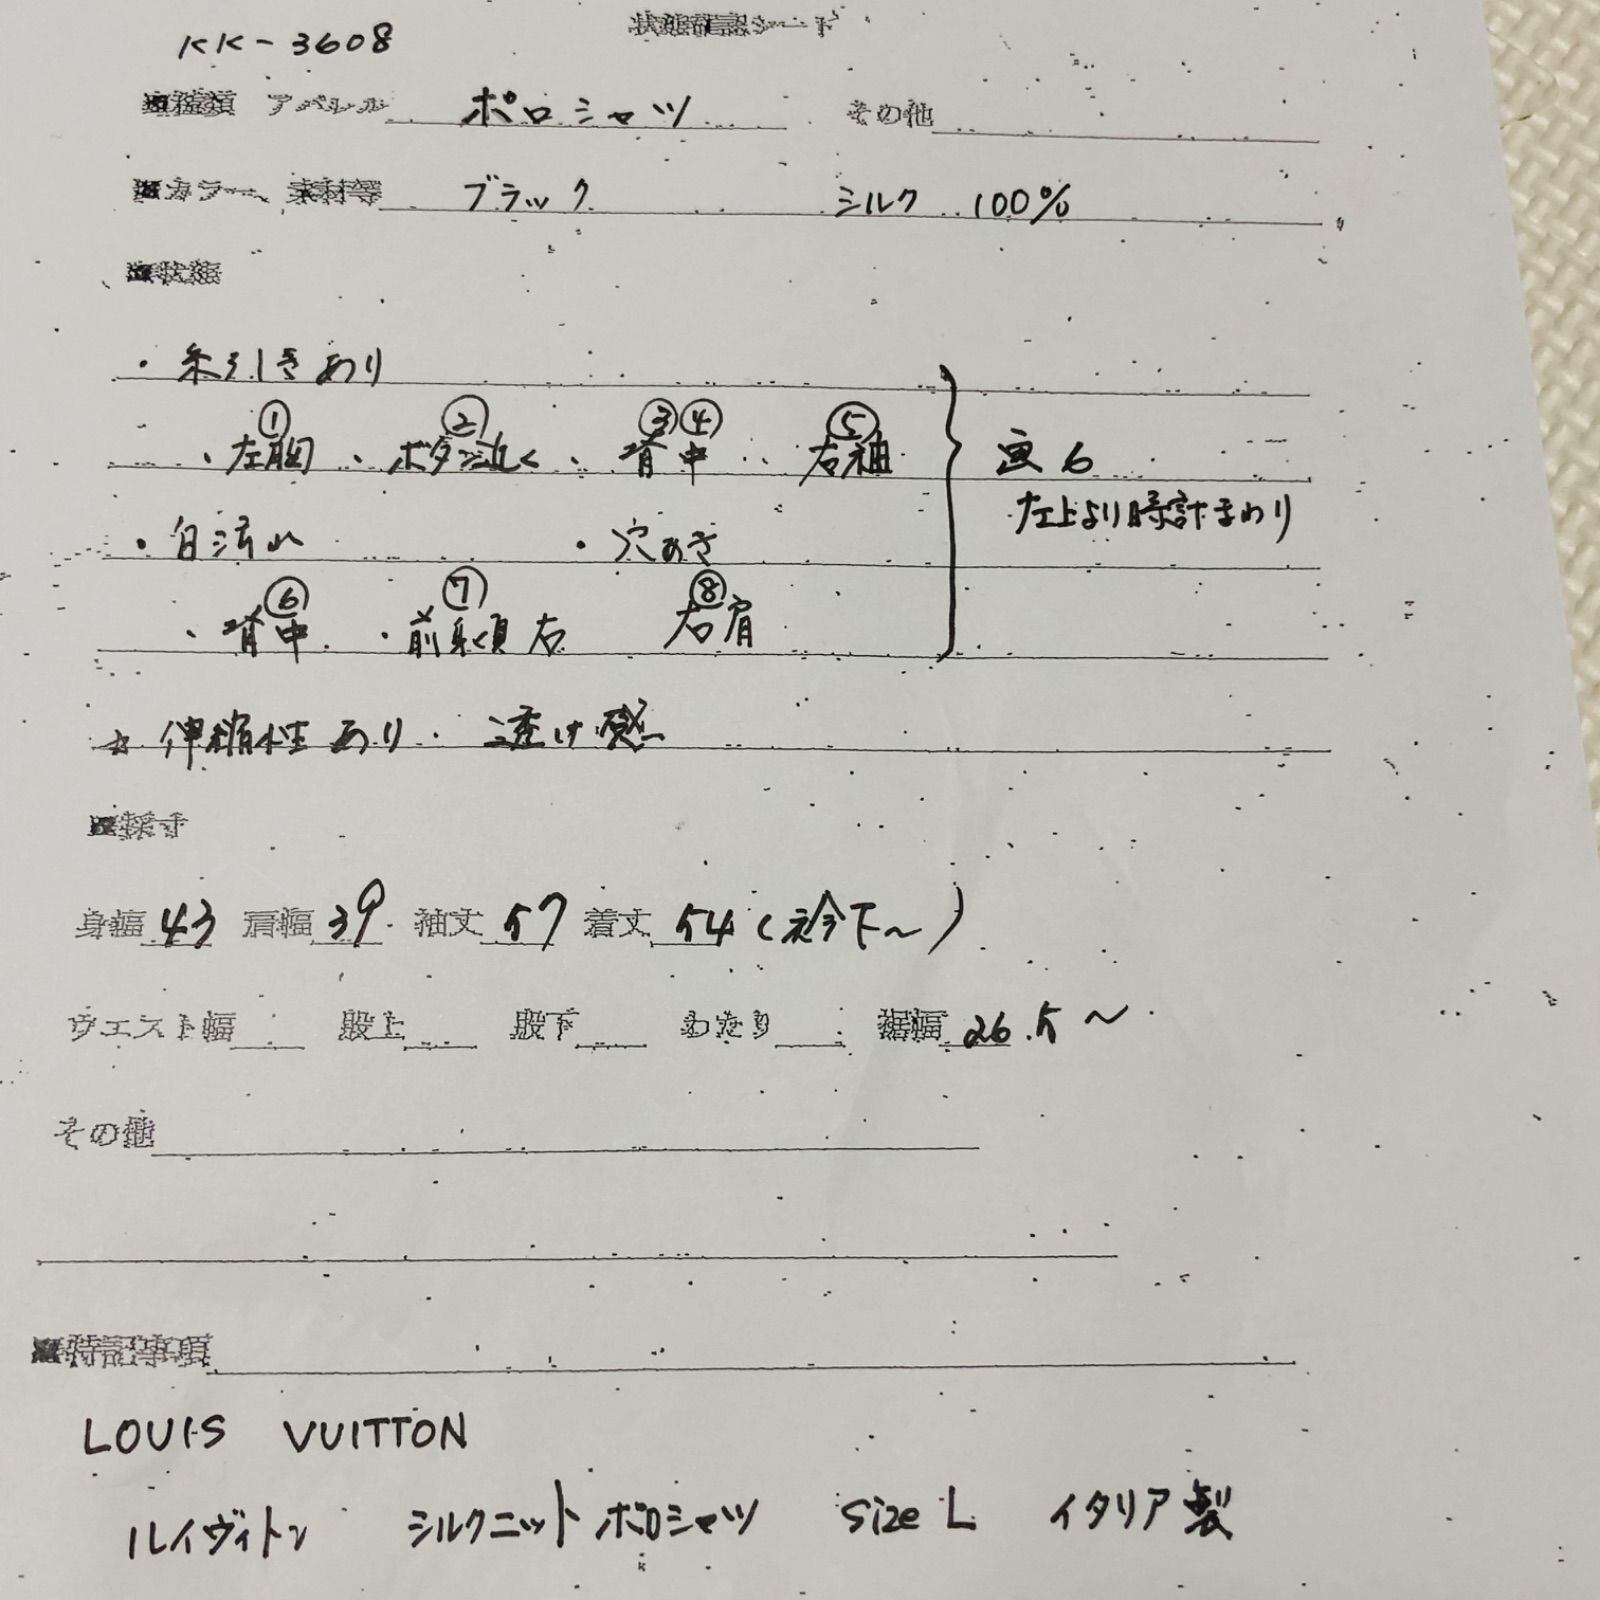 状態確認シート
KK-3608
■種類 アパレル ポロシャツ その他
■カラー、素材等 ブラック シルク 100%
■状態
・糸引きあり
① ② ③④ ⑤
・左胸 ・ボタン近く ・背中 ・右袖 画6
左上より時計まわり
・目流れ ・穴あき
⑥ ⑦ ⑧
・背中 ・前身頃右 右肩
☆ 伸縮性あり・透け感
■採寸
身幅 43 肩幅 39 袖丈 57 着丈 54(衿下〜)
ウエスト幅 股上 股下 わたり 裾幅 26.5〜
その他
■特記事項
LOUIS VUITTON
ルイヴィトン シルクニットポロシャツ size L イタリア製